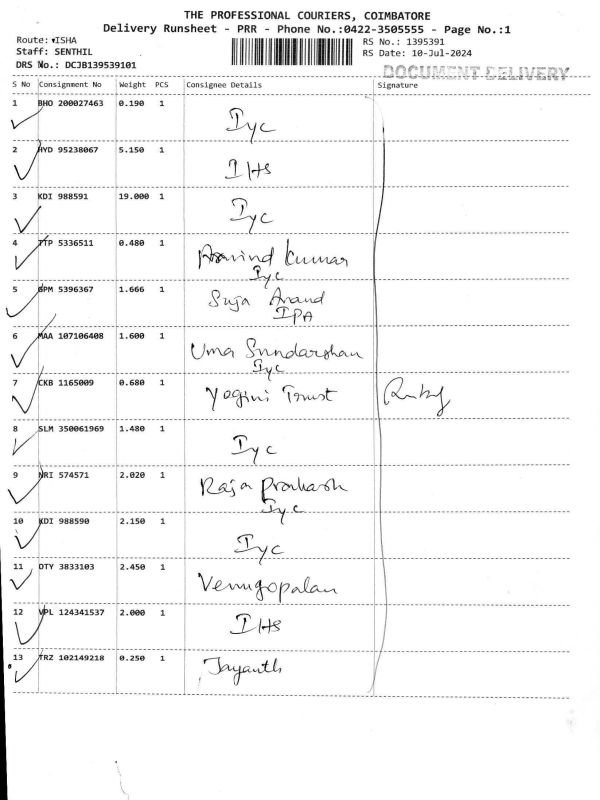 THE PROFESSIONAL COURIERS, COIMBATORE
Delivery Runsheet - PRR - Phone No.:0422-3505555 - Page No.:1
Route: ISHA
RS No.: 1395391
Staff: SENTHIL
RS Date: 10-Jul-2024
DRS No.: DCJB139539101
DOCUMENT DELIVERY
S No Consignment No Weight PCS Consignee Details Signature
1 BHO 200027463 0.190 1
Iyc
2 HYD 95238067 5.150 1
IHS
3 KDI 988591 19.000 1
Iyc
4 TTP 5336511 0.480 1 Aravind Kumar
Iyc
5 BPM 5396367 1.666 1 Suja Anand
IPA
6 MAA 107106408 1.600 1 Uma Sundarshan
Iyc
7 CKB 1165009 0.680 1 Yogini Trust
8 SLM 350061969 1.480 1
Iyc
9 NRI 574571 2.020 1 Raja Prakash
Iyc
10 KDI 988590 2.150 1
Iyc
11 DTY 3833103 2.450 1
Venugopalan
12 VPL 124341537 2.000 1
IHS
13 TRZ 102149218 0.250 1 Jayanth